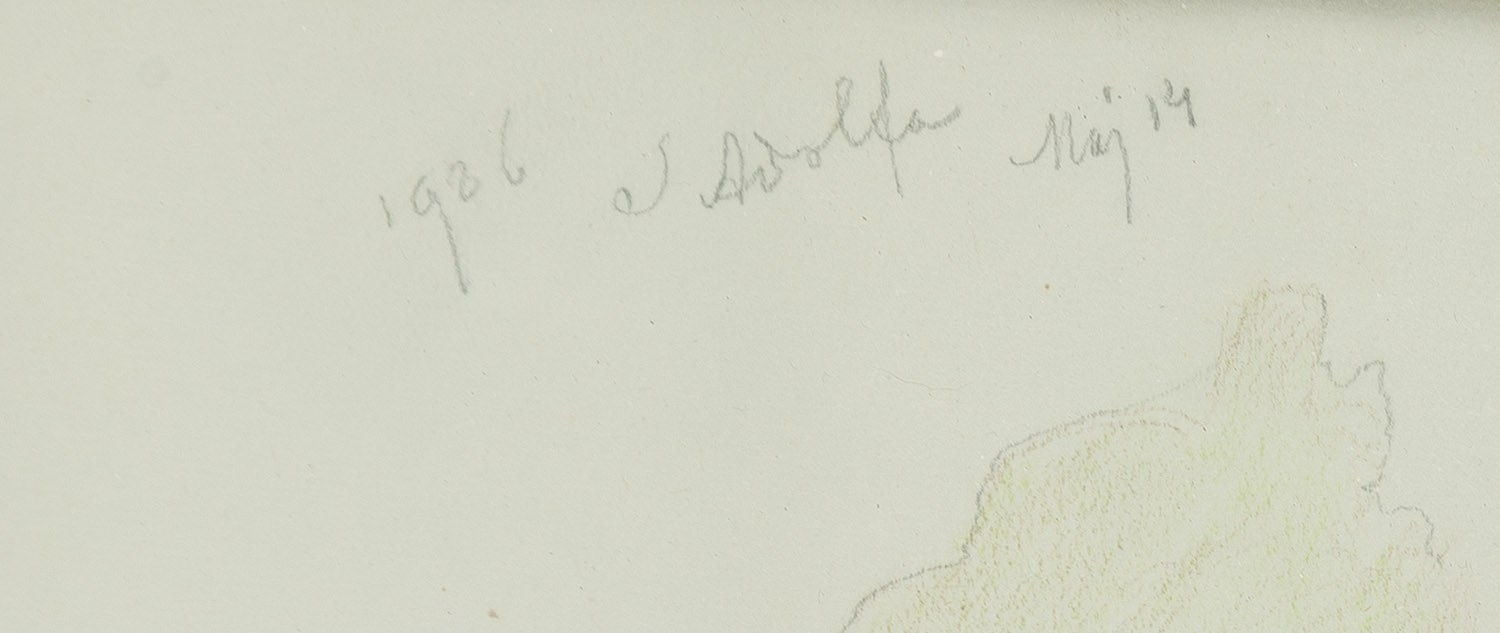 1926 S Adolfa Maj 14